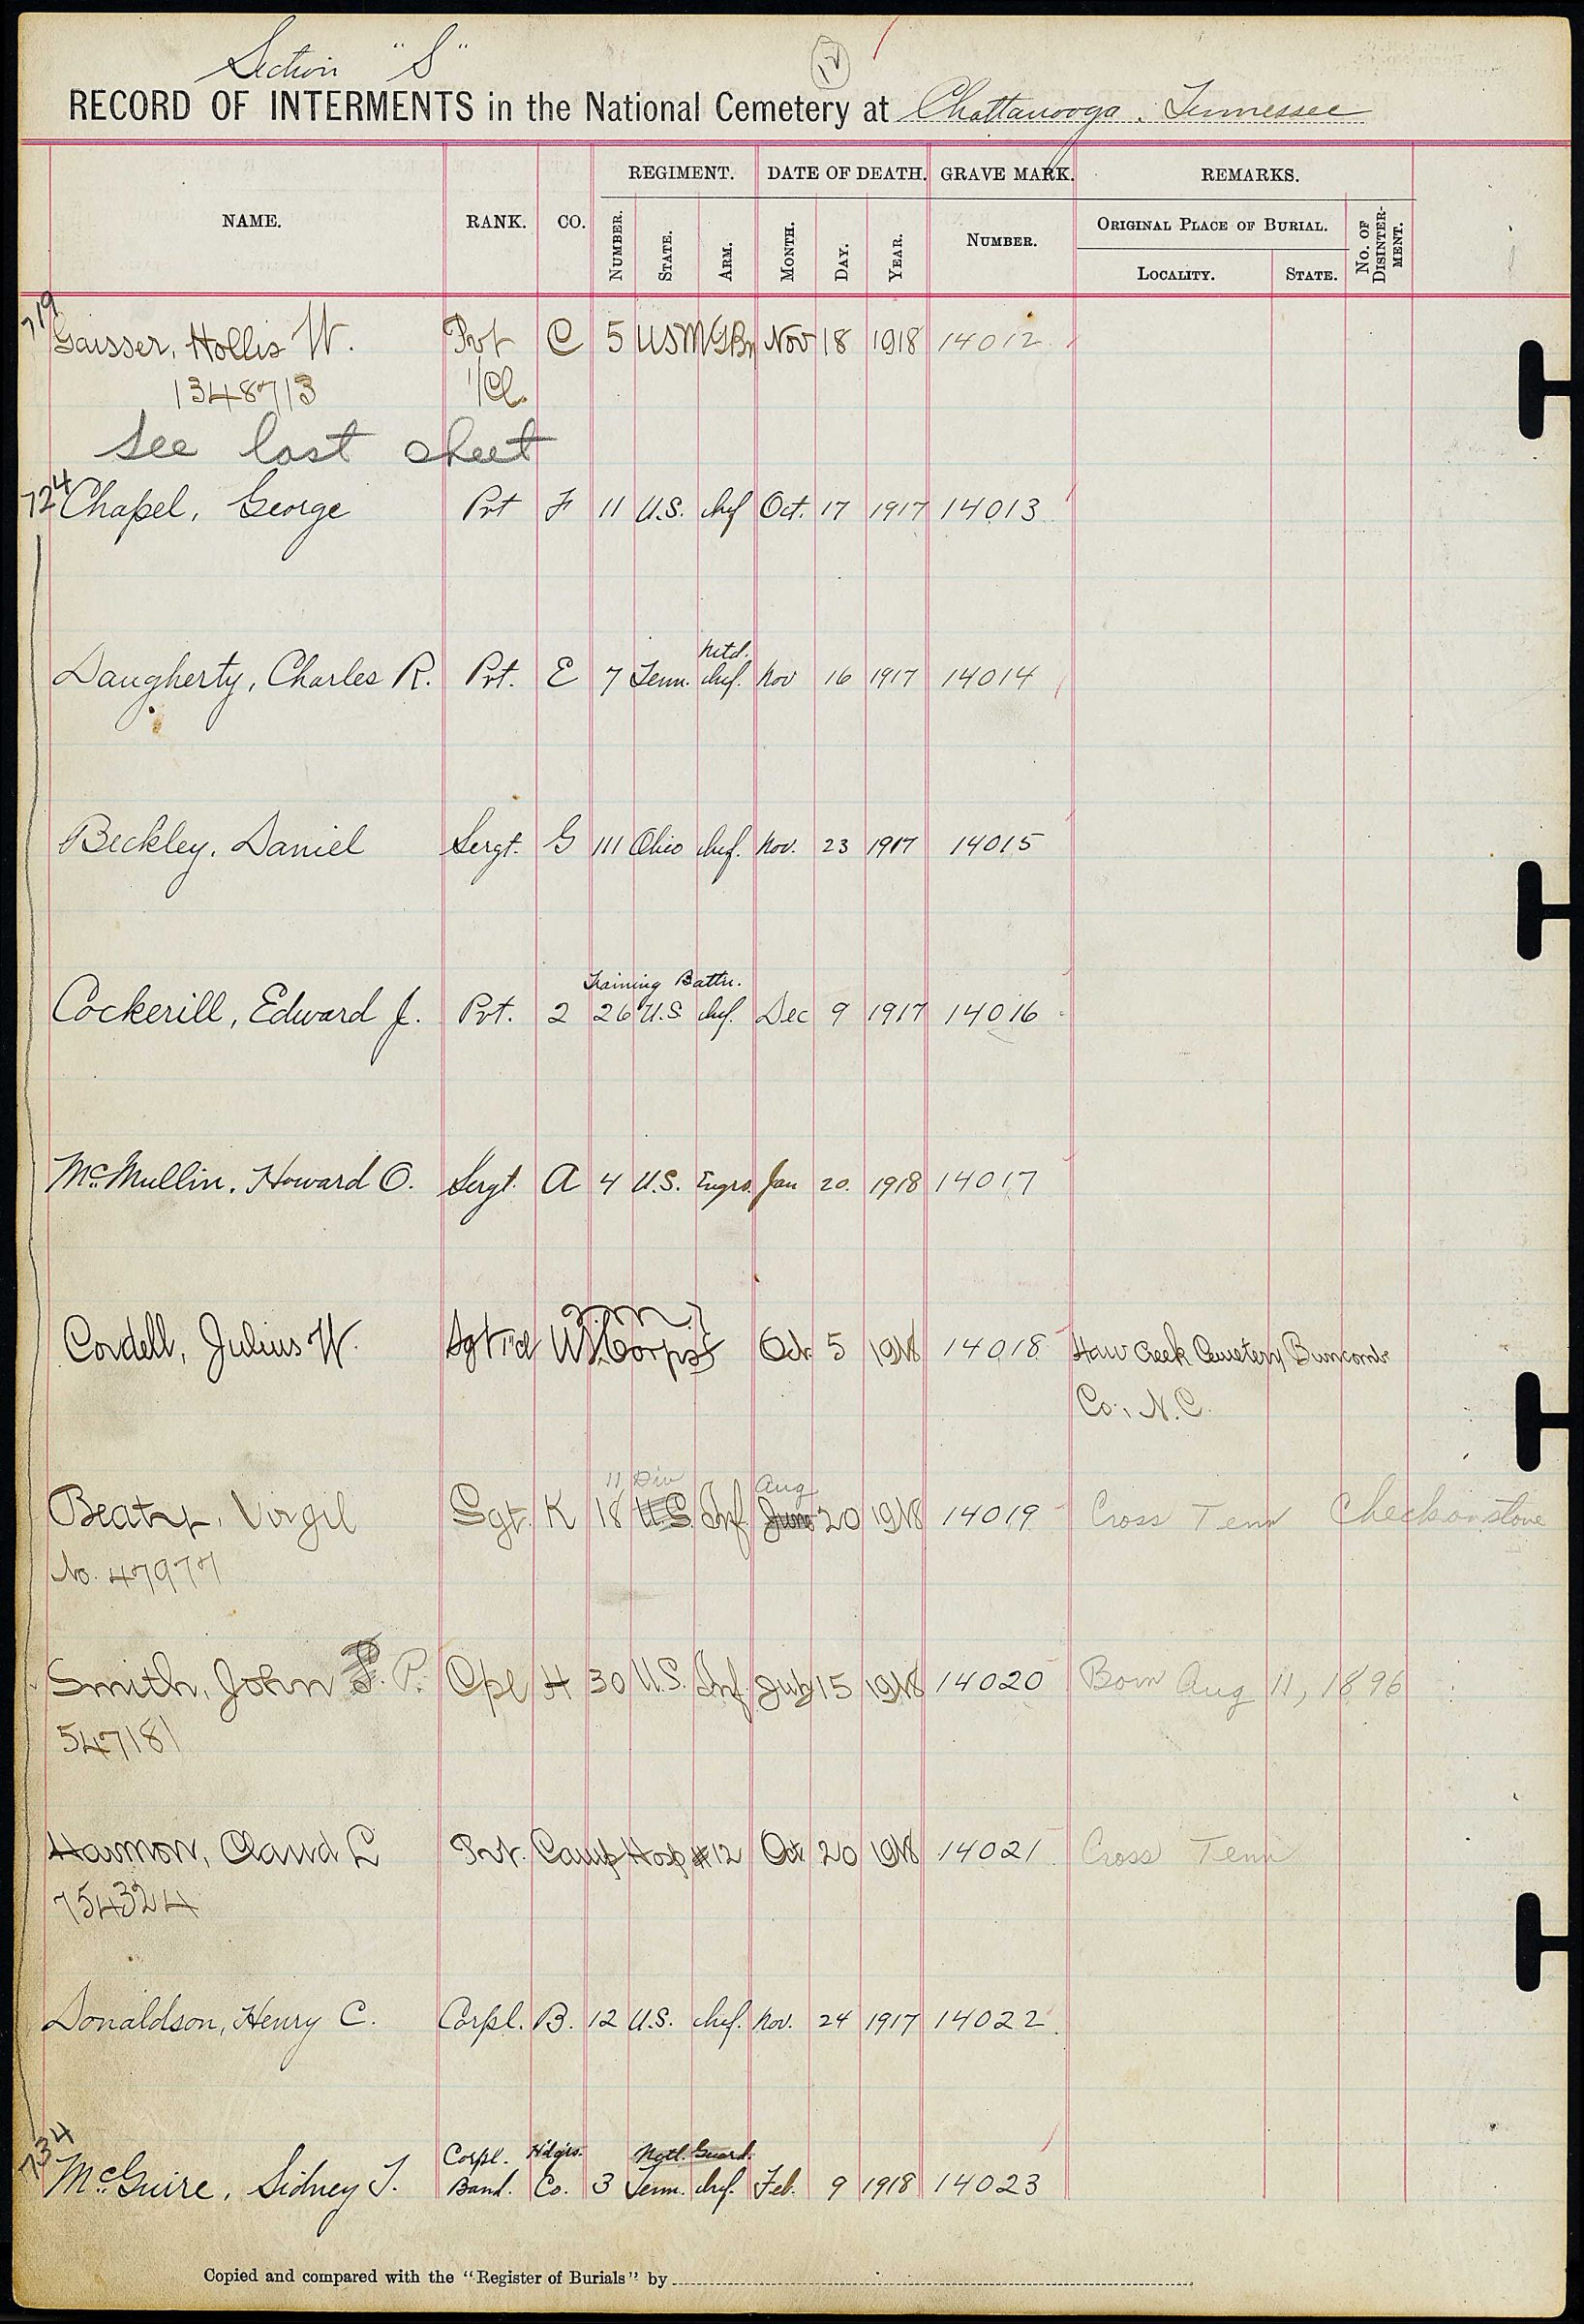 Section "S" 12
RECORD OF INTERMENTS in the National Cemetery at Chattanooga, Tennessee
REGIMENT. DATE OF DEATH. GRAVE MARK. REMARKS.
NAME. RANK. CO. NUMBER. STATE. ARM. MONTH. DAY. YEAR. NUMBER. ORIGINAL PLACE OF BURIAL. NO. OF DISINTERMENT.
LOCALITY. STATE.
719
Gaisser, Hollis W. Pvt C 5 US MGBn Nov 18 1918 14012
1348713 1/Cl.
See last sheet
724 Chapel, George Pvt F 11 U.S. Inf Oct. 17 1917 14013
Natd.
Daugherty, Charles R. Pvt. E 7 Tenn. Inf. Nov 16 1917 14014
Beckley, Daniel Sergt. G 111 Ohio Inf. Nov. 23 1917 14015
Training Battn.
Cockerill, Edward J. Pvt. 2 26 U.S. Inf. Dec 9 1917 14016
McMullin, Howard O. Sergt. A 4 U.S. Engrs. Jan 20. 1918 14017
2m
Cordell, Julius W. Sgt 1"cl U.S. Corps Oct 5 1918 14018 Haw Creek Cemetery Buncomb
Co., N.C.
11 Div Aug
Beaty, Virgil Sgt. K 18 U.S. Inf. June 20 1918 14019 Cross Tenn Check on stone
No. 47977
Smith, John F. P. Cpl H 30 U.S. Inf. July 15 1918 14020 Born Aug 11, 1896
547181
Harmon, Claud L Pvt. Camp Hosp #12 Oct 20 1918 14021 Cross Tenn
754324
Donaldson, Henry C. Corpl. B. 12 U.S. Inf. Nov. 24 1917 14022
734 Corpl. Hdqrs. Natl. Guard.
McGuire, Sidney T. Band. Co. 3 Tenn. Inf. Feb. 9 1918 14023
Copied and compared with the "Register of Burials" by